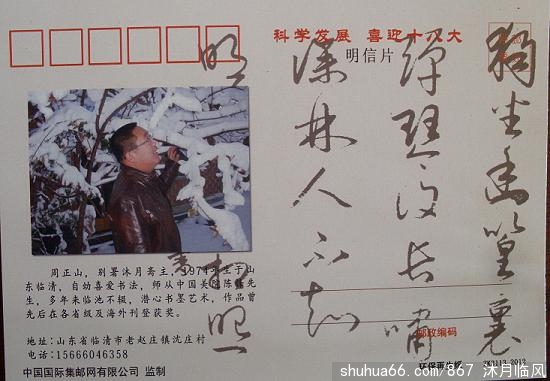 科学发展 喜迎十八大
明信片
独坐幽篁裏
弹琴復长啸
深林人不知
明
来相照
周正山，别署沐月斋主，197 年生于山
东临清，自幼喜爱书法，师从中国美院陈 先
生，多年来临池不辍，潜心书墨艺术，作品曾
先后在各省级及海外刊登获奖。
地址：山东省临清市老赵庄镇沈庄村
电话：15666046358
中国国际集邮网有限公司 监制
邮政编码
环保再生纸
shuhua66.com/867 沐月临风